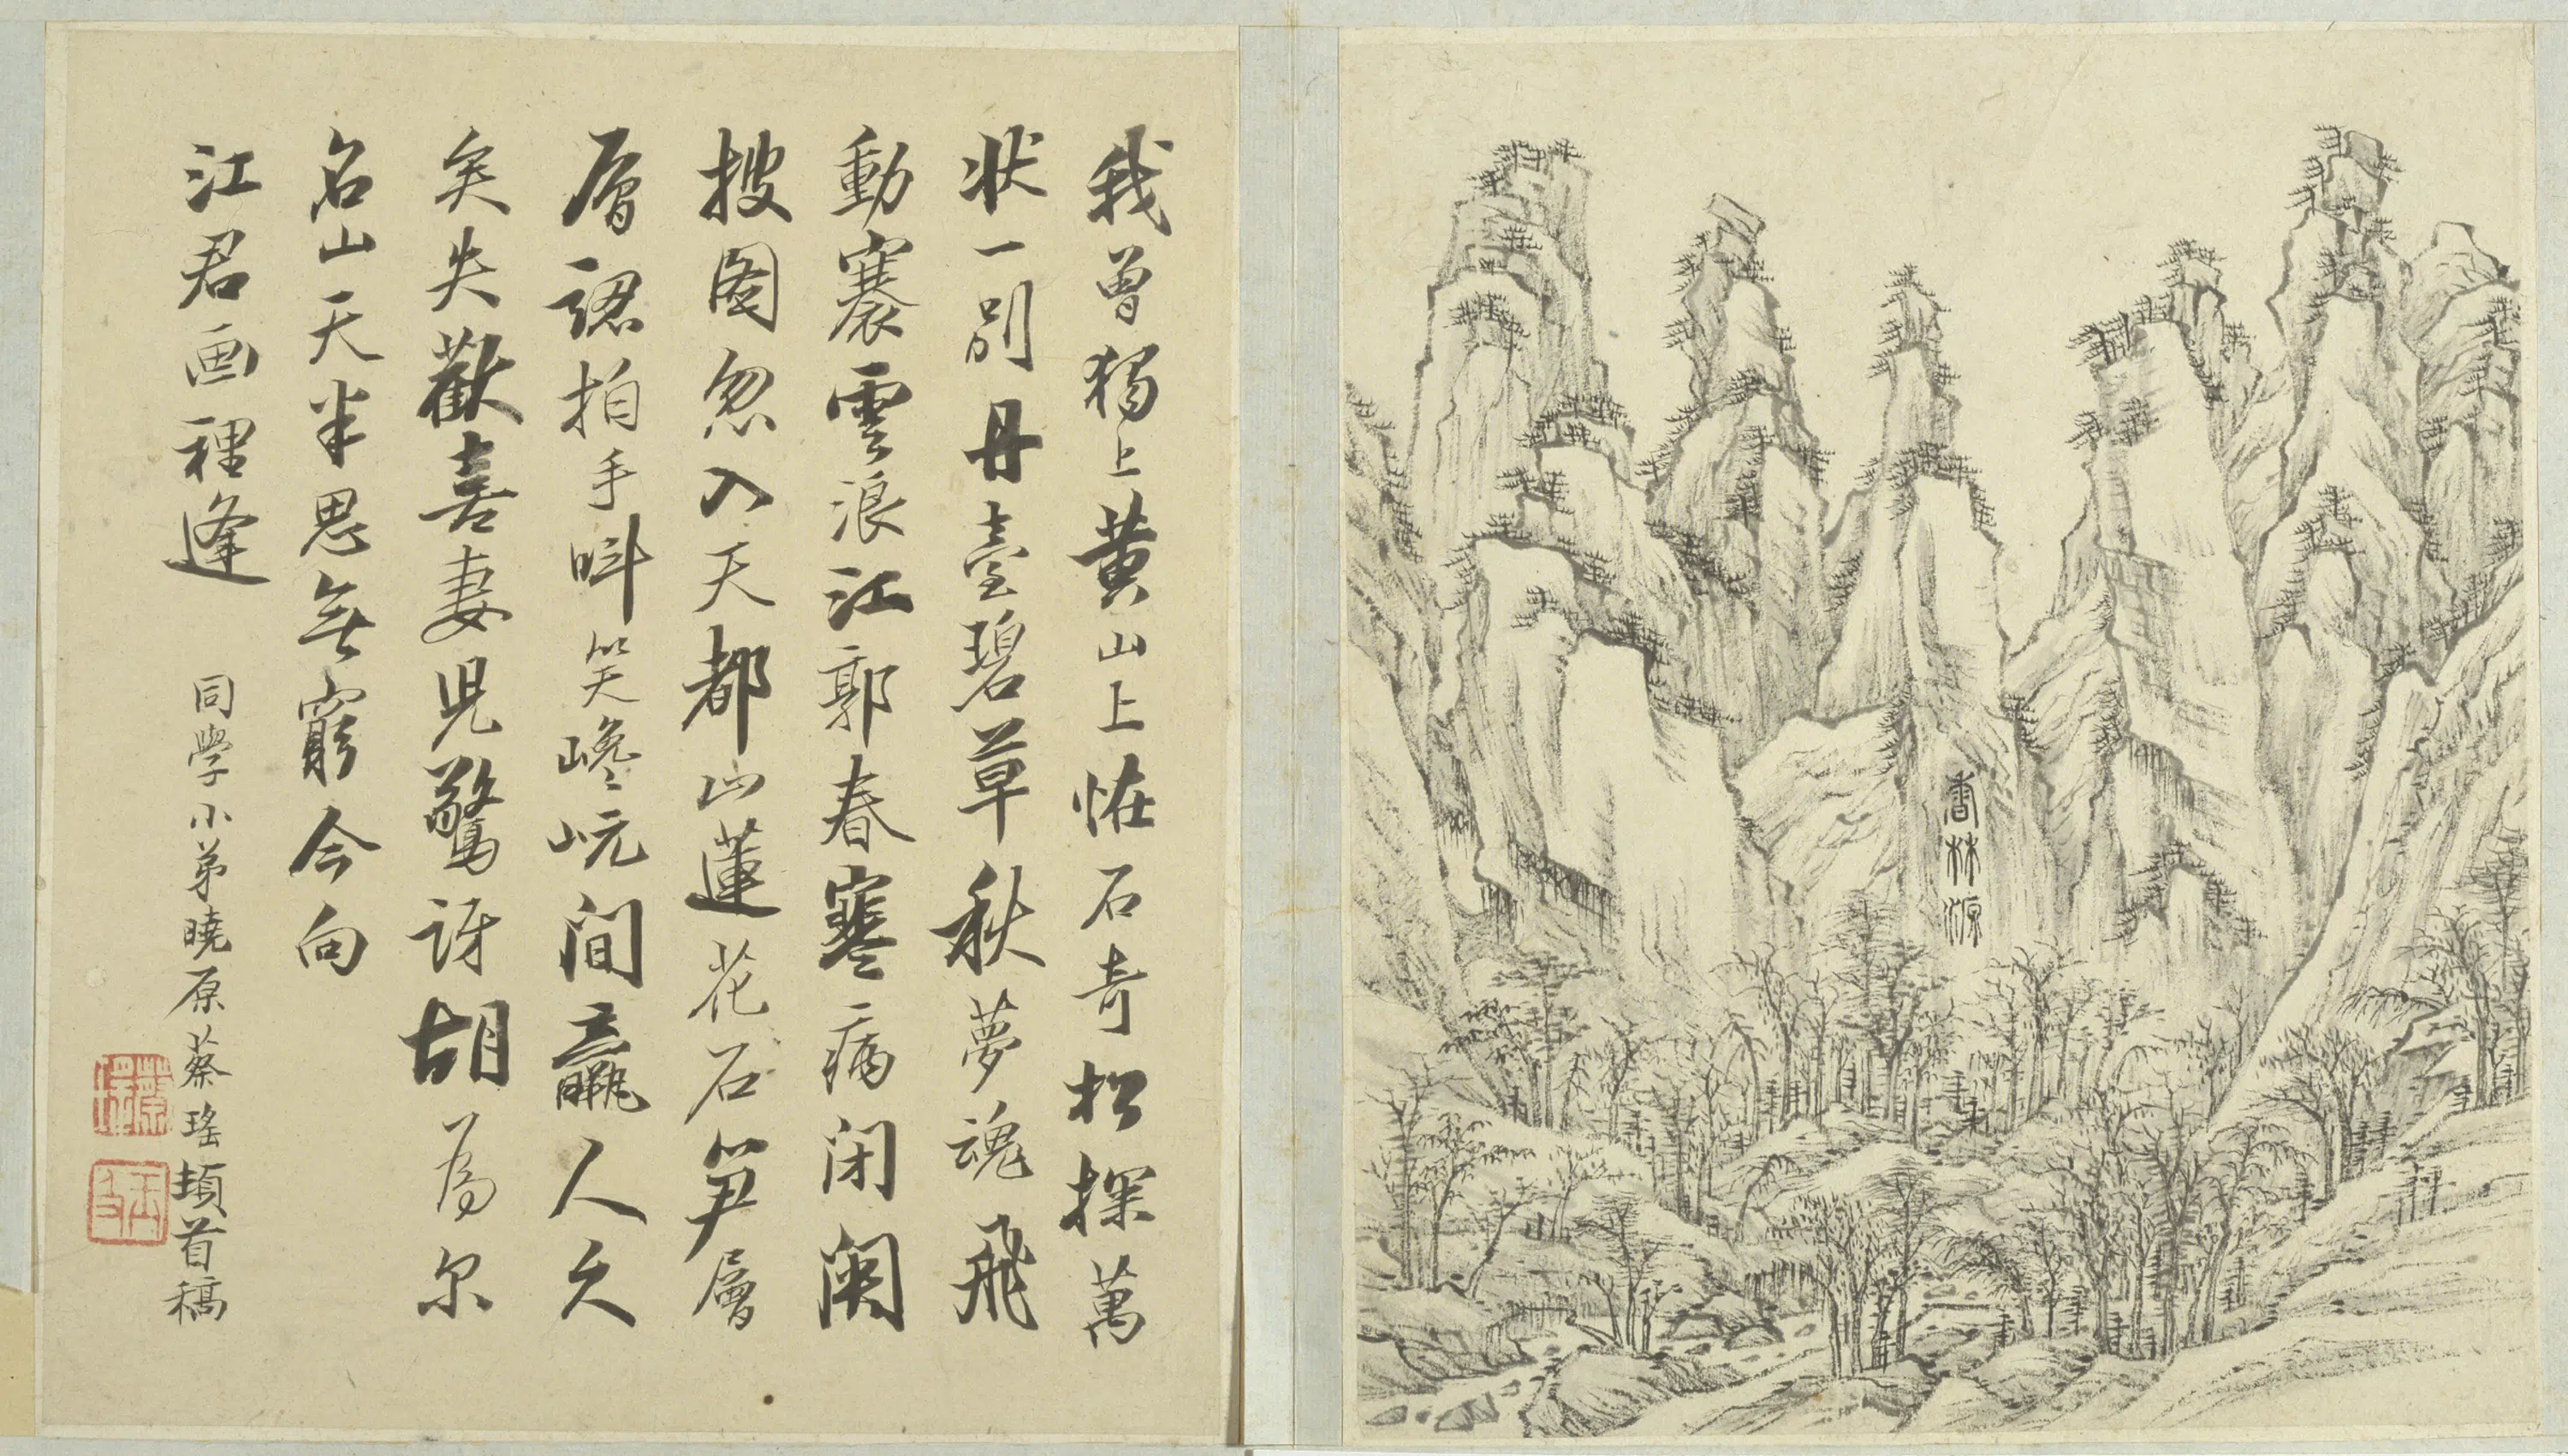 香林源
我曾獨上黃山上恠石奇松探萬
狀一別丹臺碧草秋夢魂飛
動褰雲浪江郭春寒病閉関
披图忽入天都山蓮花石笋層
層認拍手呌笑巉岏間羸人久
矣失歡喜妻児驚訝胡為尔
名山天半思無窮今向
江君画裡逢
同學小弟曉原蔡瑤頓首稿